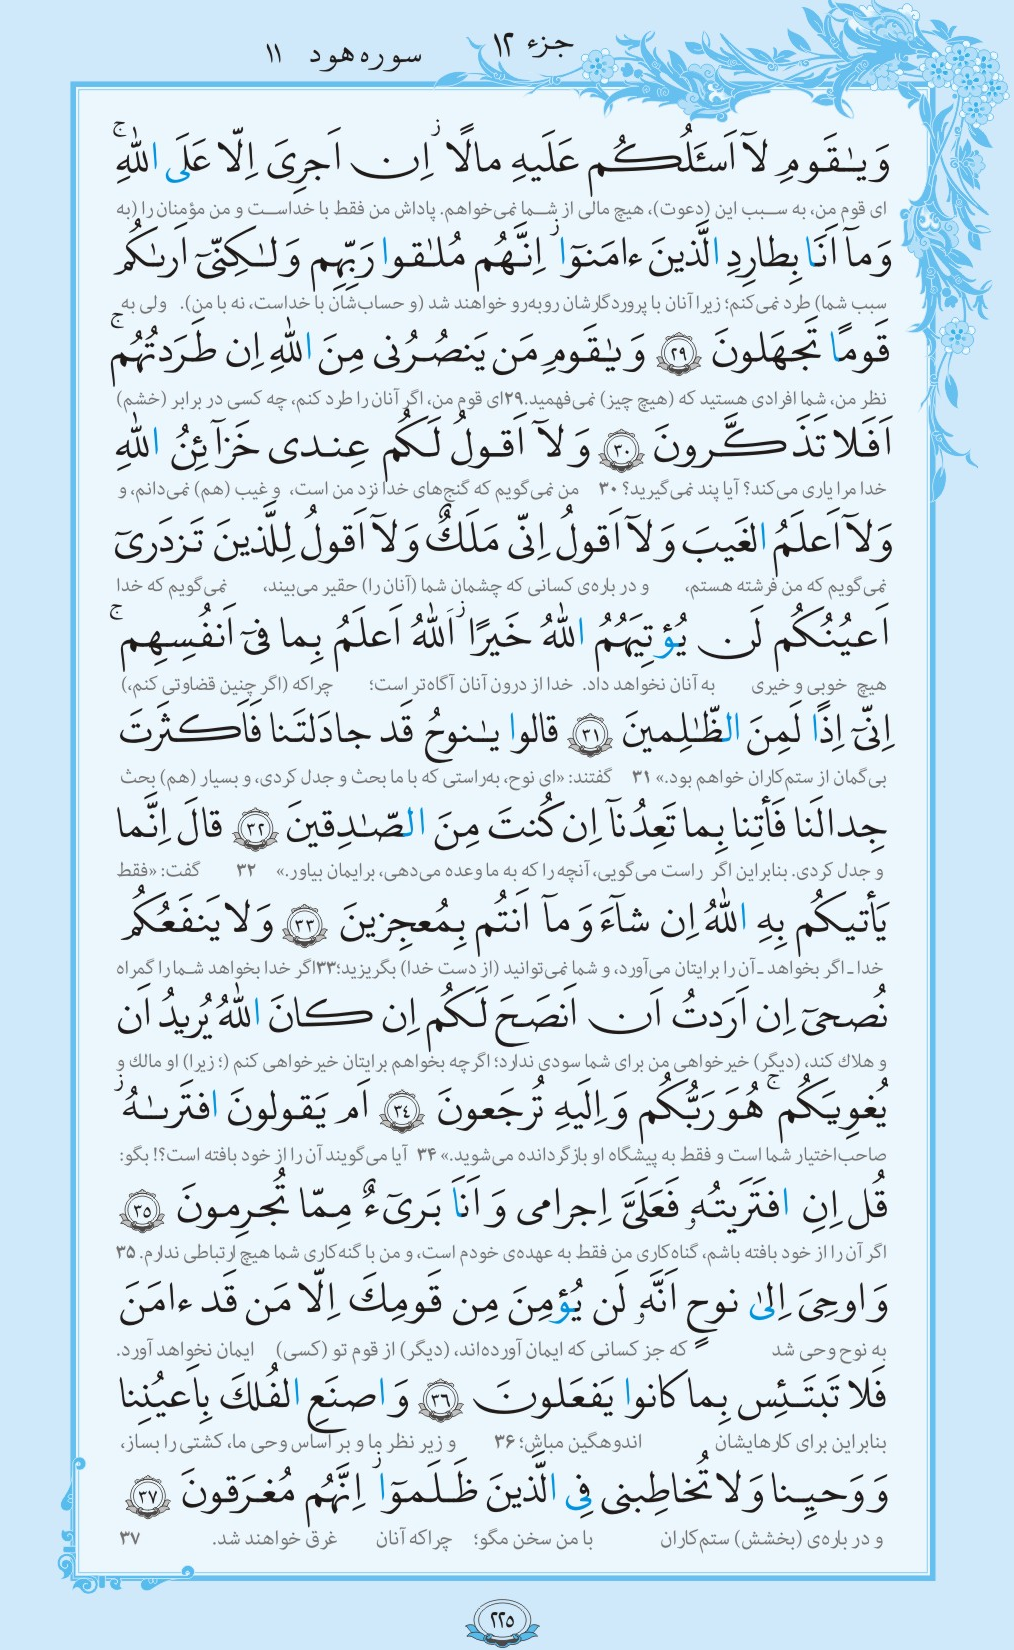 جزء ۱۲
سوره هود ۱۱
وَ یـٰقَومِ لاۤ اَسـَٔلُكُم عَلَیهِ مالًا ۖ اِن اَجرِیَ اِلّا عَلَى اللهِ ۚ
ای قوم من، به سبب این (دعوت)، هیچ مالی از شما نمی‌خواهم. پاداش من فقط با خداست و من مؤمنان را (به
وَ ماۤ اَنَا بِطارِدِ الَّذینَ ءامَنوۤا ۚ اِنَّهُم مُلـٰقوا رَبِّهِم وَلـٰكِنّیۤ اَرىٰكُم
سبب شما) طرد نمی‌کنم؛ زیرا آنان با پروردگارشان روبه‌رو خواهند شد (و حساب‌شان با خداست، نه با من). ولی به
قَومًا تَجهَلونَ ﴿۲۹﴾ وَ یـٰقَومِ مَن یَنصُرُنی مِنَ اللهِ اِن طَرَدتُهُم ۚ
نظر من، شما افرادی هستید که (هیچ چیز) نمی‌فهمید.۲۹ای قوم من، اگر آنان را طرد کنم، چه کسی در برابر (خشم)
اَفَلا تَذَكَّرونَ ﴿۳۰﴾ وَ لاۤ اَقولُ لَكُم عِندی خَزاۤئِنُ اللهِ
خدا مرا یاری می‌کند؟ آیا پند نمی‌گیرید؟ ۳۰ من نمی‌گویم که گنج‌های خدا نزد من است، و غیب (هم) نمی‌دانم، و
وَلاۤ اَعلَمُ الغَیبَ وَ لاۤ اَقولُ اِنّی مَلَكٌ وَ لاۤ اَقولُ لِلَّذینَ تَزدَریۤ
نمی‌گویم که من فرشته هستم، و در باره‌ی کسانی که چشمان شما (آنان را) حقیر می‌بیند، نمی‌گویم که خدا
اَعیُنُكُم لَن یُؤتِیَهُمُ اللهُ خَیرًا ۖ اَللهُ اَعلَمُ بِما فیۤ اَنفُسِهِم ۚ
هیچ خوبی و خیری به آنان نخواهد داد. خدا از درون آنان آگاه‌تر است؛ چراکه (اگر چنین قضاوتی کنم،)
اِنّیۤ اِذًا لَمِنَ الظّـٰلِمینَ ﴿۳۱﴾ قالوا یـٰنوحُ قَد جادَلتَنا فَاَكثَرتَ
بی‌گمان از ستم‌کاران خواهم بود.» ۳۱ گفتند: «ای نوح، به‌راستی که با ما بحث و جدل کردی، و بسیار (هم) بحث
جِدالَنا فَأتِنا بِما تَعِدُناۤ اِن كُنتَ مِنَ الصّـٰدِقینَ ﴿۳۲﴾ قالَ اِنَّما
و جدل کردی. بنابراین اگر راست می‌گویی، آنچه را که به ما وعده می‌دهی، برایمان بیاور.» ۳۲ گفت: «فقط
یَأتیكُم بِهِ اللهُ اِن شاۤءَ وَ ماۤ اَنتُم بِمُعجِزینَ ﴿۳۳﴾ وَ لا یَنفَعُكُم
خدا ـ اگر بخواهد ـ آن را برایتان می‌آورد، و شما نمی‌توانید (از دست خدا) بگریزید؛۳۳اگر خدا بخواهد شما را گمراه
نُصحیۤ اِن اَرَدتُ اَن اَنصَحَ لَكُم اِن كانَ اللهُ یُریدُ اَن
و هلاك کند، (دیگر) خیرخواهی من برای شما سودی ندارد؛ اگرچه بخواهم برایتان خیرخواهی کنم (؛ زیرا) او مالك و
یُغوِیَكُم ۚ هُوَ رَبُّكُم وَ اِلَیهِ تُرجَعونَ ﴿۳۴﴾ اَم یَقولونَ افتَرىٰهُ ۖ
صاحب‌اختیار شما است و فقط به پیشگاه او بازگردانده می‌شوید.» ۳۴ آیا می‌گویند آن را از خود بافته است؟! بگو:
قُل اِنِ افتَرَیتُهُ فَعَلَیَّ اِجرامی وَ اَنَا بَریۤءٌ مِمّا تُجرِمونَ ﴿۳۵﴾
اگر آن را از خود بافته باشم، گناه‌کاری من فقط به عهده‌ی خودم است، و من با گنه‌کاری شما هیچ ارتباطی ندارم. ۳۵
وَ اوحِیَ اِلىٰ نوحٍ اَنَّهُ لَن یُؤمِنَ مِن قَومِكَ اِلّا مَن قَد ءامَنَ
به نوح وحی شد که جز کسانی که ایمان آورده‌اند، (دیگر) از قوم تو (کسی) ایمان نخواهد آورد.
فَلا تَبتَـئِس بِما كانوا یَفعَلونَ ﴿۳۶﴾ وَ اصنَعِ الفُلكَ بِاَعیُنِنا
بنابراین برای کارهایشان اندوهگین مباش؛ ۳۶ و زیر نظر ما و بر اساس وحی ما، کشتی را بساز،
وَ وَحیِنا وَ لا تُخاطِبنی فِی الَّذینَ ظَلَموۤا ۚ اِنَّهُم مُغرَقونَ ﴿۳۷﴾
و در باره‌ی (بخشش) ستم‌کاران با من سخن مگو؛ چراکه آنان غرق خواهند شد. ۳۷
۲۲۵